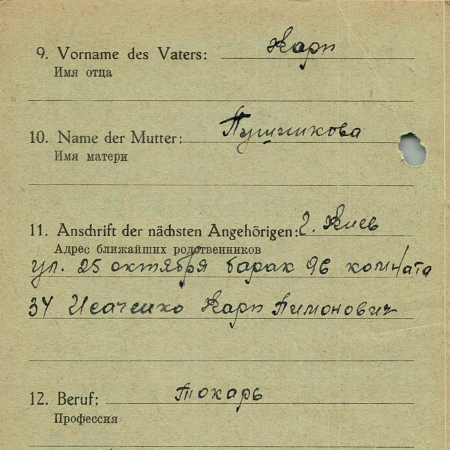 9. Vorname des Vaters: Карп
Имя отца
10. Name der Mutter: Пушишкова
Имя матери
11. Anschrift der nächsten Angehörigen: г. Киев
Адрес ближайших родственников
ул. 25 октября барак 96 комната
34 Исаченко Карп Пимонович
12. Beruf: токарь
Профессия